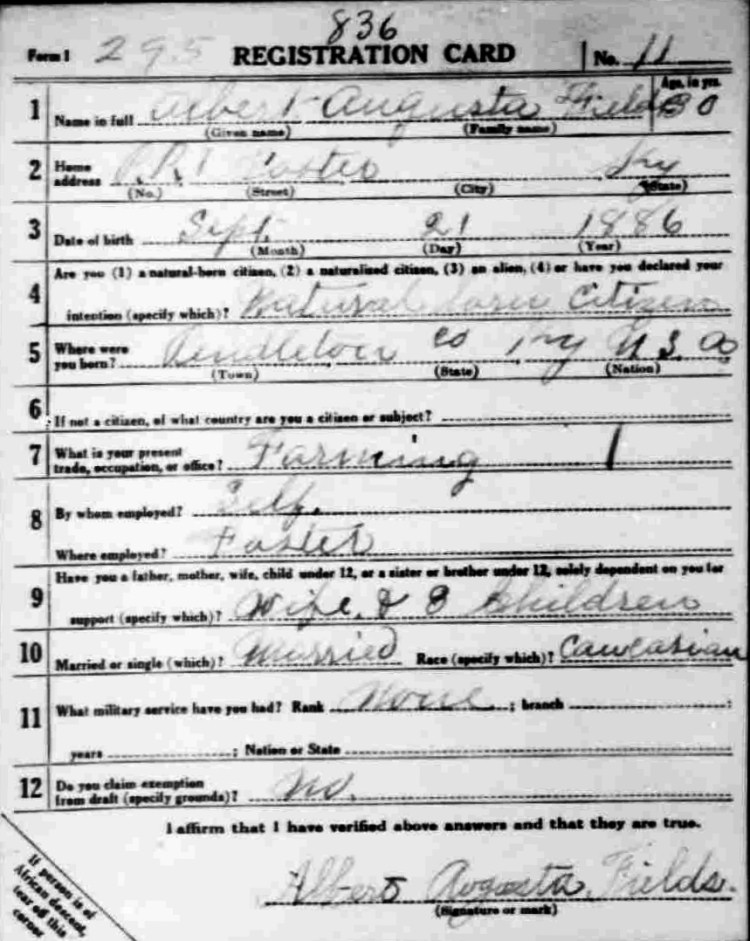 836
Form 1 295 REGISTRATION CARD No. 11
1 Name in full Albert Augusta Fields Age, in yrs. 30
(Given name) (Family name)
2 Home address R.R.1 Foster Ky
(No.) (Street) (City) (State)
3 Date of birth Sept. 21 1886
(Month) (Day) (Year)
4 Are you (1) a natural-born citizen, (2) a naturalized citizen, (3) an alien, (4) or have you declared your
intention (specify which)? Natural born Citizen
5 Where were you born? Pendleton co Ky U.S.A
(Town) (State) (Nation)
6 If not a citizen, of what country are you a citizen or subject?
7 What is your present trade, occupation, or office? Farming 1
8 By whom employed? Self.
Where employed? Foster
9 Have you a father, mother, wife, child under 12, or a sister or brother under 12, solely dependent on you for
support (specify which)? Wife & 3 Children
10 Married or single (which)? Married Race (specify which)? Caucasian
11 What military service have you had? Rank None ; branch ;
years ; Nation or State
12 Do you claim exemption from draft (specify grounds)? No.
I affirm that I have verified above answers and that they are true.
Albert Augusta Fields.
(Signature or mark)
If person is of
African descent,
tear off this
corner.